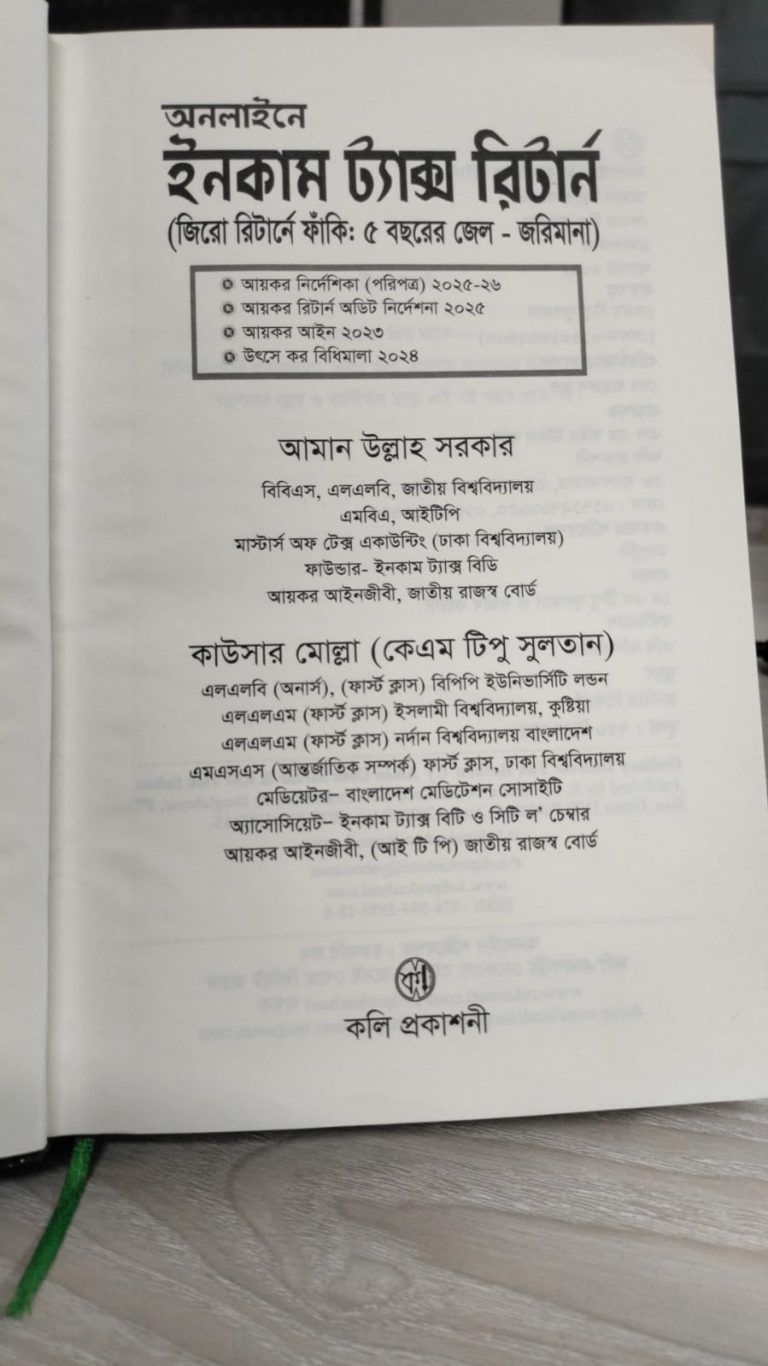 অনলাইনে
ইনকাম ট্যাক্স রিটার্ন
(জিরো রিটার্নে ফাঁকি: ৫ বছরের জেল - জরিমানা)
আয়কর নির্দেশিকা (পরিপত্র) ২০২৫-২৬
আয়কর রিটার্ন অডিট নির্দেশনা ২০২৫
আয়কর আইন ২০২৩
উৎসে কর বিধিমালা ২০২৪
আমান উল্লাহ সরকার
বিবিএস, এলএলবি, জাতীয় বিশ্ববিদ্যালয়
এমবিএ, আইটিপি
মাস্টার্স অফ টেক্স একাউন্টিং (ঢাকা বিশ্ববিদ্যালয়)
ফাউন্ডার- ইনকাম ট্যাক্স বিডি
আয়কর আইনজীবী, জাতীয় রাজস্ব বোর্ড
কাউসার মোল্লা (কেএম টিপু সুলতান)
এলএলবি (অনার্স), (ফার্স্ট ক্লাস) বিপিপি ইউনিভার্সিটি লন্ডন
এলএলএম (ফার্স্ট ক্লাস) ইসলামী বিশ্ববিদ্যালয়, কুষ্টিয়া
এলএলএম (ফার্স্ট ক্লাস) নর্দান বিশ্ববিদ্যালয় বাংলাদেশ
এমএসএস (আন্তর্জাতিক সম্পর্ক) ফার্স্ট ক্লাস, ঢাকা বিশ্ববিদ্যালয়
মেডিয়েটর– বাংলাদেশ মেডিটেশন সোসাইটি
অ্যাসোসিয়েট– ইনকাম ট্যাক্স বিটি ও সিটি ল' চেম্বার
আয়কর আইনজীবী, (আই টি পি) জাতীয় রাজস্ব বোর্ড
কলি প্রকাশনী